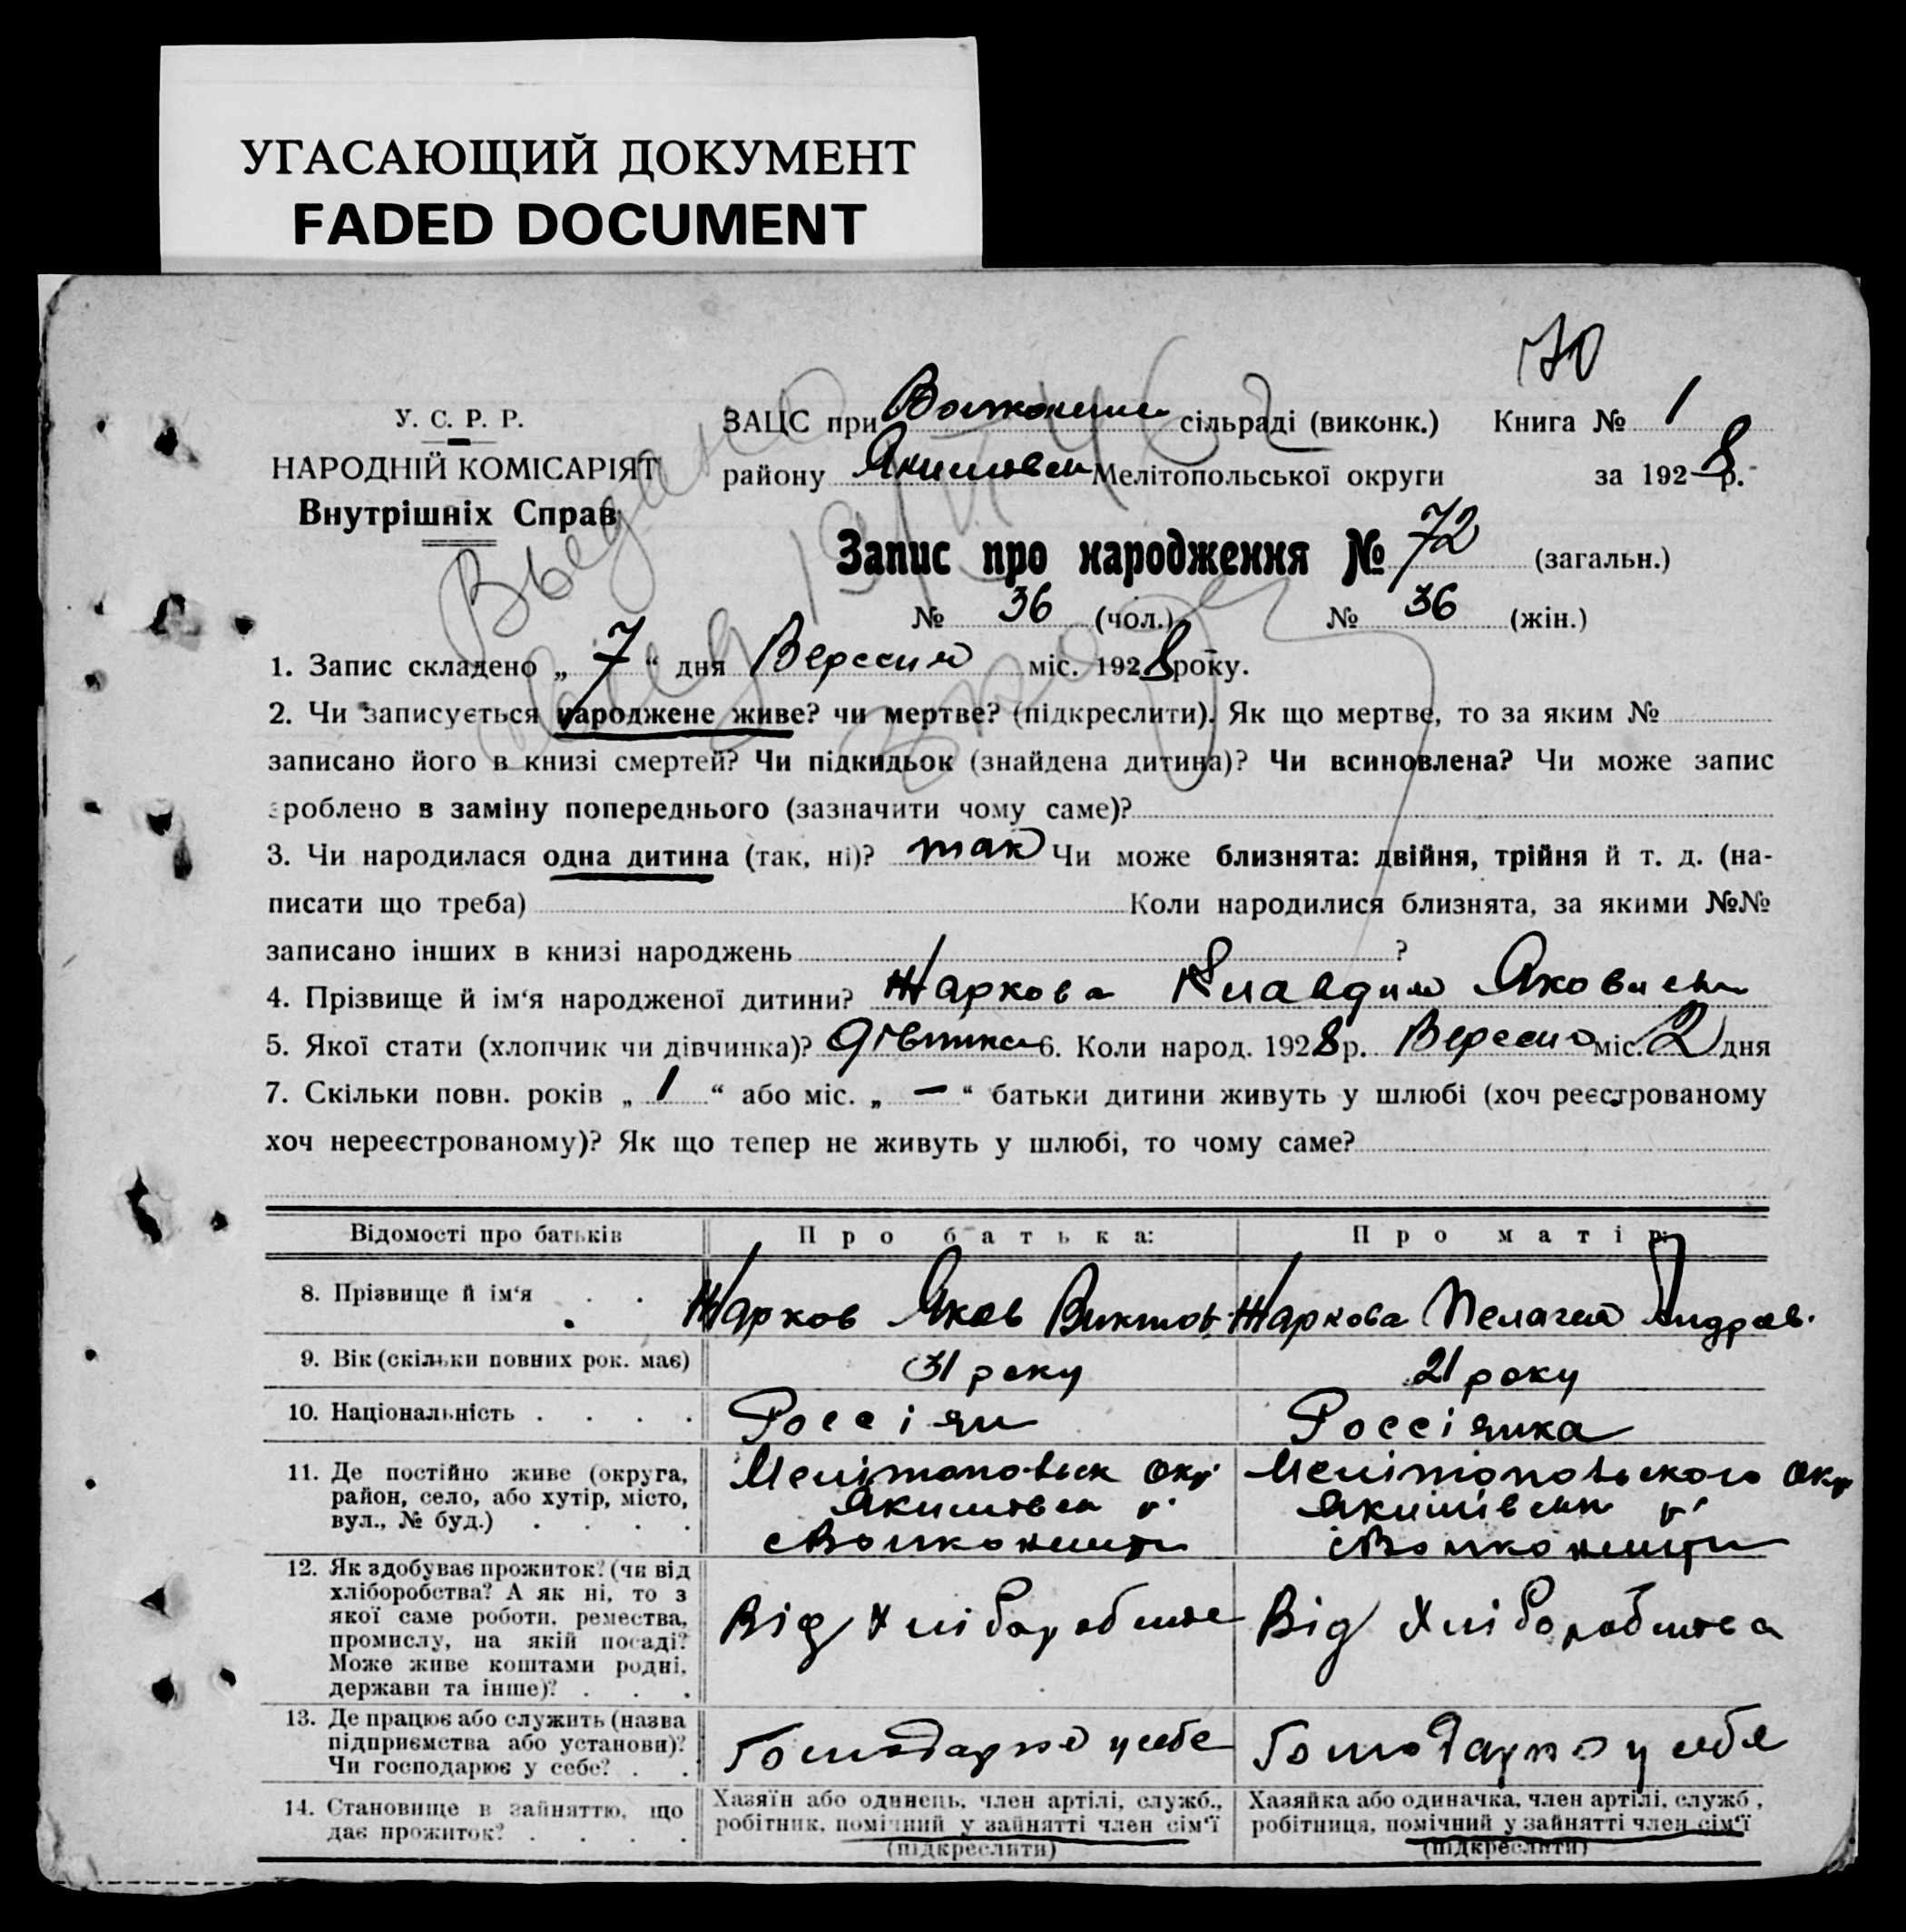 УГАСАЮЩИЙ ДОКУМЕНТ
FADED DOCUMENT
70
У. С. Р. Р.
НАРОДНІЙ КОМІСАРІЯТ
Внутрішніх Справ
ЗАЦС при сільраді (виконк.) Книга № 1
району Якимовск Мелітопольської округи за 1928 р.
Запис про народження № 72 (загальн.)
№ 36 (чол.) № 36 (жін.)
1. Запис складено „ 7 “ дня Вересня міс. 1928 року.
2. Чи записується народжене живе? чи мертве? (підкреслити). Як що мертве, то за яким №
записано його в книзі смертей? Чи підкидьок (знайдена дитина)? Чи всиновлена? Чи може запис
зроблено в заміну попереднього (зазначити чому саме)?
3. Чи народилася одна дитина (так, ні)? так Чи може близнята: двійня, трійня й т. д. (на-
писати що треба) Коли народилися близнята, за якими №№
записано інших в книзі народжень ?
4. Прізвище й ім‘я народженої дитини? Жаркова Клавдия Яковисна
5. Якої стати (хлопчик чи дівчинка)? дівчинка 6. Коли народ. 1928 р. Вересня міс. 2 дня
7. Скільки повн. років „ 1 “ або міс. „ — “ батьки дитини живуть у шлюбі (хоч реєстрованому
хоч нереєстрованому)? Як що тепер не живуть у шлюбі, то чому саме?
Відомості про батьків Про батька: Про матір:
8. Прізвище й ім‘я Жарков Яков Виктов. Жаркова Пелагея Андреев.
9. Вік (скільки повних рок. має) 31 року 21 року
10. Національність Россіян Россіянка
11. Де постійно живе (округа, Мелітопольск окр. Мелітопольского окр
район, село, або хутір, місто, Якимовск р. Якимівськ р.
вул., № буд.)
12. Як здобуває прожиток? (чи від
хліборобства? А як ні, то з
якої саме роботи, ремества, Від Хліборобства Від Хліборобства
промислу, на якій посаді?
Може живе коштами родні,
держави та інше)?
13. Де працює або служить (назва
підприємства або установи)? Господарює у себе Господарює у себе
Чи господарює у себе?
14. Становище в зайняттю, що Хазяїн або одинець, член артілі, служб., Хазяйка або одиначка, член артілі, служб,
дає прожиток? робітник, помічний у зайнятті член сім‘ї робітниця, помічний у зайнятті член сім‘ї
(підкреслити) (підкреслити)